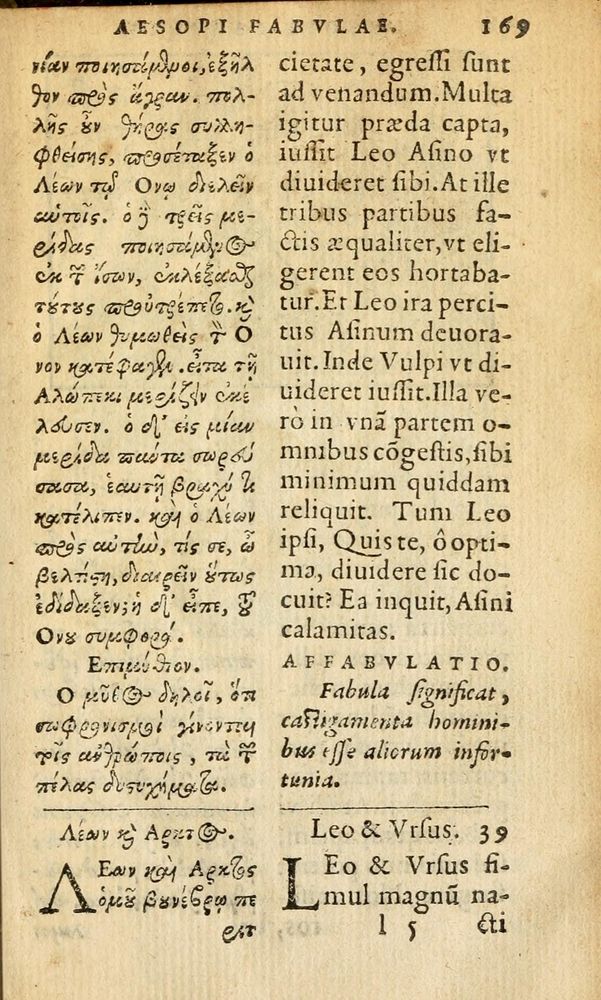 AESOPI FABVLAE. 169
νίαν ποιησάμενοι, ἐξῆλ
θον πρὸς ἄγραν. πολ-
λῆς οὖν θήρας συλλη-
φθείσης, προσέταξεν ὁ
Λέων τῷ Ονῳ διελεῖν
αὐτοῖς. ὁ δὲ τρεῖς με-
ρίδας ποιησάμενος
ἐκ τῶν ἴσων, ἐκλέξασθαι
τούτους προὐτρέπετο. καὶ
ὁ Λέων θυμωθεὶς τὸν Ο
νον κατέφαγεν. εἶτα τῇ
Αλώπεκι μερίζειν ἐκέ
λευσεν. ὁ δ' εἰς μίαν
μερίδα πάντα σωρεύ
σασα, ἑαυτῇ βραχύ τι
κατέλιπεν. καὶ ὁ Λέων
πρὸς αὐτὴν, τίς σε, ὦ
βελτίστη, διαιρεῖν οὕτως
ἐδίδαξεν; ἡ δ' εἶπε, τοῦ
Ονου συμφορά.
Επιμύθιον.
Ο μῦθος δηλοῖ, ὅτι
σωφρονισμοὶ γίνονται
τοῖς ἀνθρώποις, τὰ τῶν
πέλας δυστυχήματα.
Λέων καὶ Αρκτος.
ΛΕων καὶ Αρκτος
ὁμοῦ βουνέβρῳ πε
ριτ
cietate, egreſſi ſunt
ad venandum. Multa
igitur præda capta,
iuſſit Leo Aſino vt
diuideret ſibi. At ille
tribus partibus fa-
ctis æqualiter, vt eli-
gerent eos hortaba-
tur. Et Leo ira perci-
tus Aſinum deuora-
uit. Inde Vulpi vt di-
uideret iuſſit. Illa ve-
rò in vnā partem o-
mnibus cōgeſtis, ſibi
minimum quiddam
reliquit. Tum Leo
ipſi, Quis te, ô opti-
ma, diuidere ſic do-
cuit? Ea inquit, Aſini
calamitas.
AFFABVLATIO.
Fabula ſignificat,
caſtigamenta homini-
bus eſſe aliorum infor-
tunia.
Leo & Vrſus. 39
LEo & Vrſus ſi-
mul magnū na-
l 5 cti